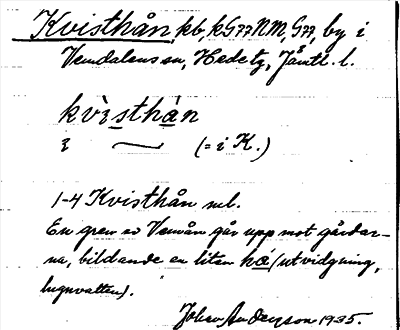 Kvisthån, kb, kG77NM, G77, by i
Vemdalens sn, Hede tg, Jämtl. l.
kvɩ̀sthán
ɩ ⁓ (= i K.)
1-4 Kvisthån nb.
En gren av Vemån går upp mot gårdar-
na, bildande en liten hå (utvidgning,
lugnvatten).
Johan Anderson 1935.